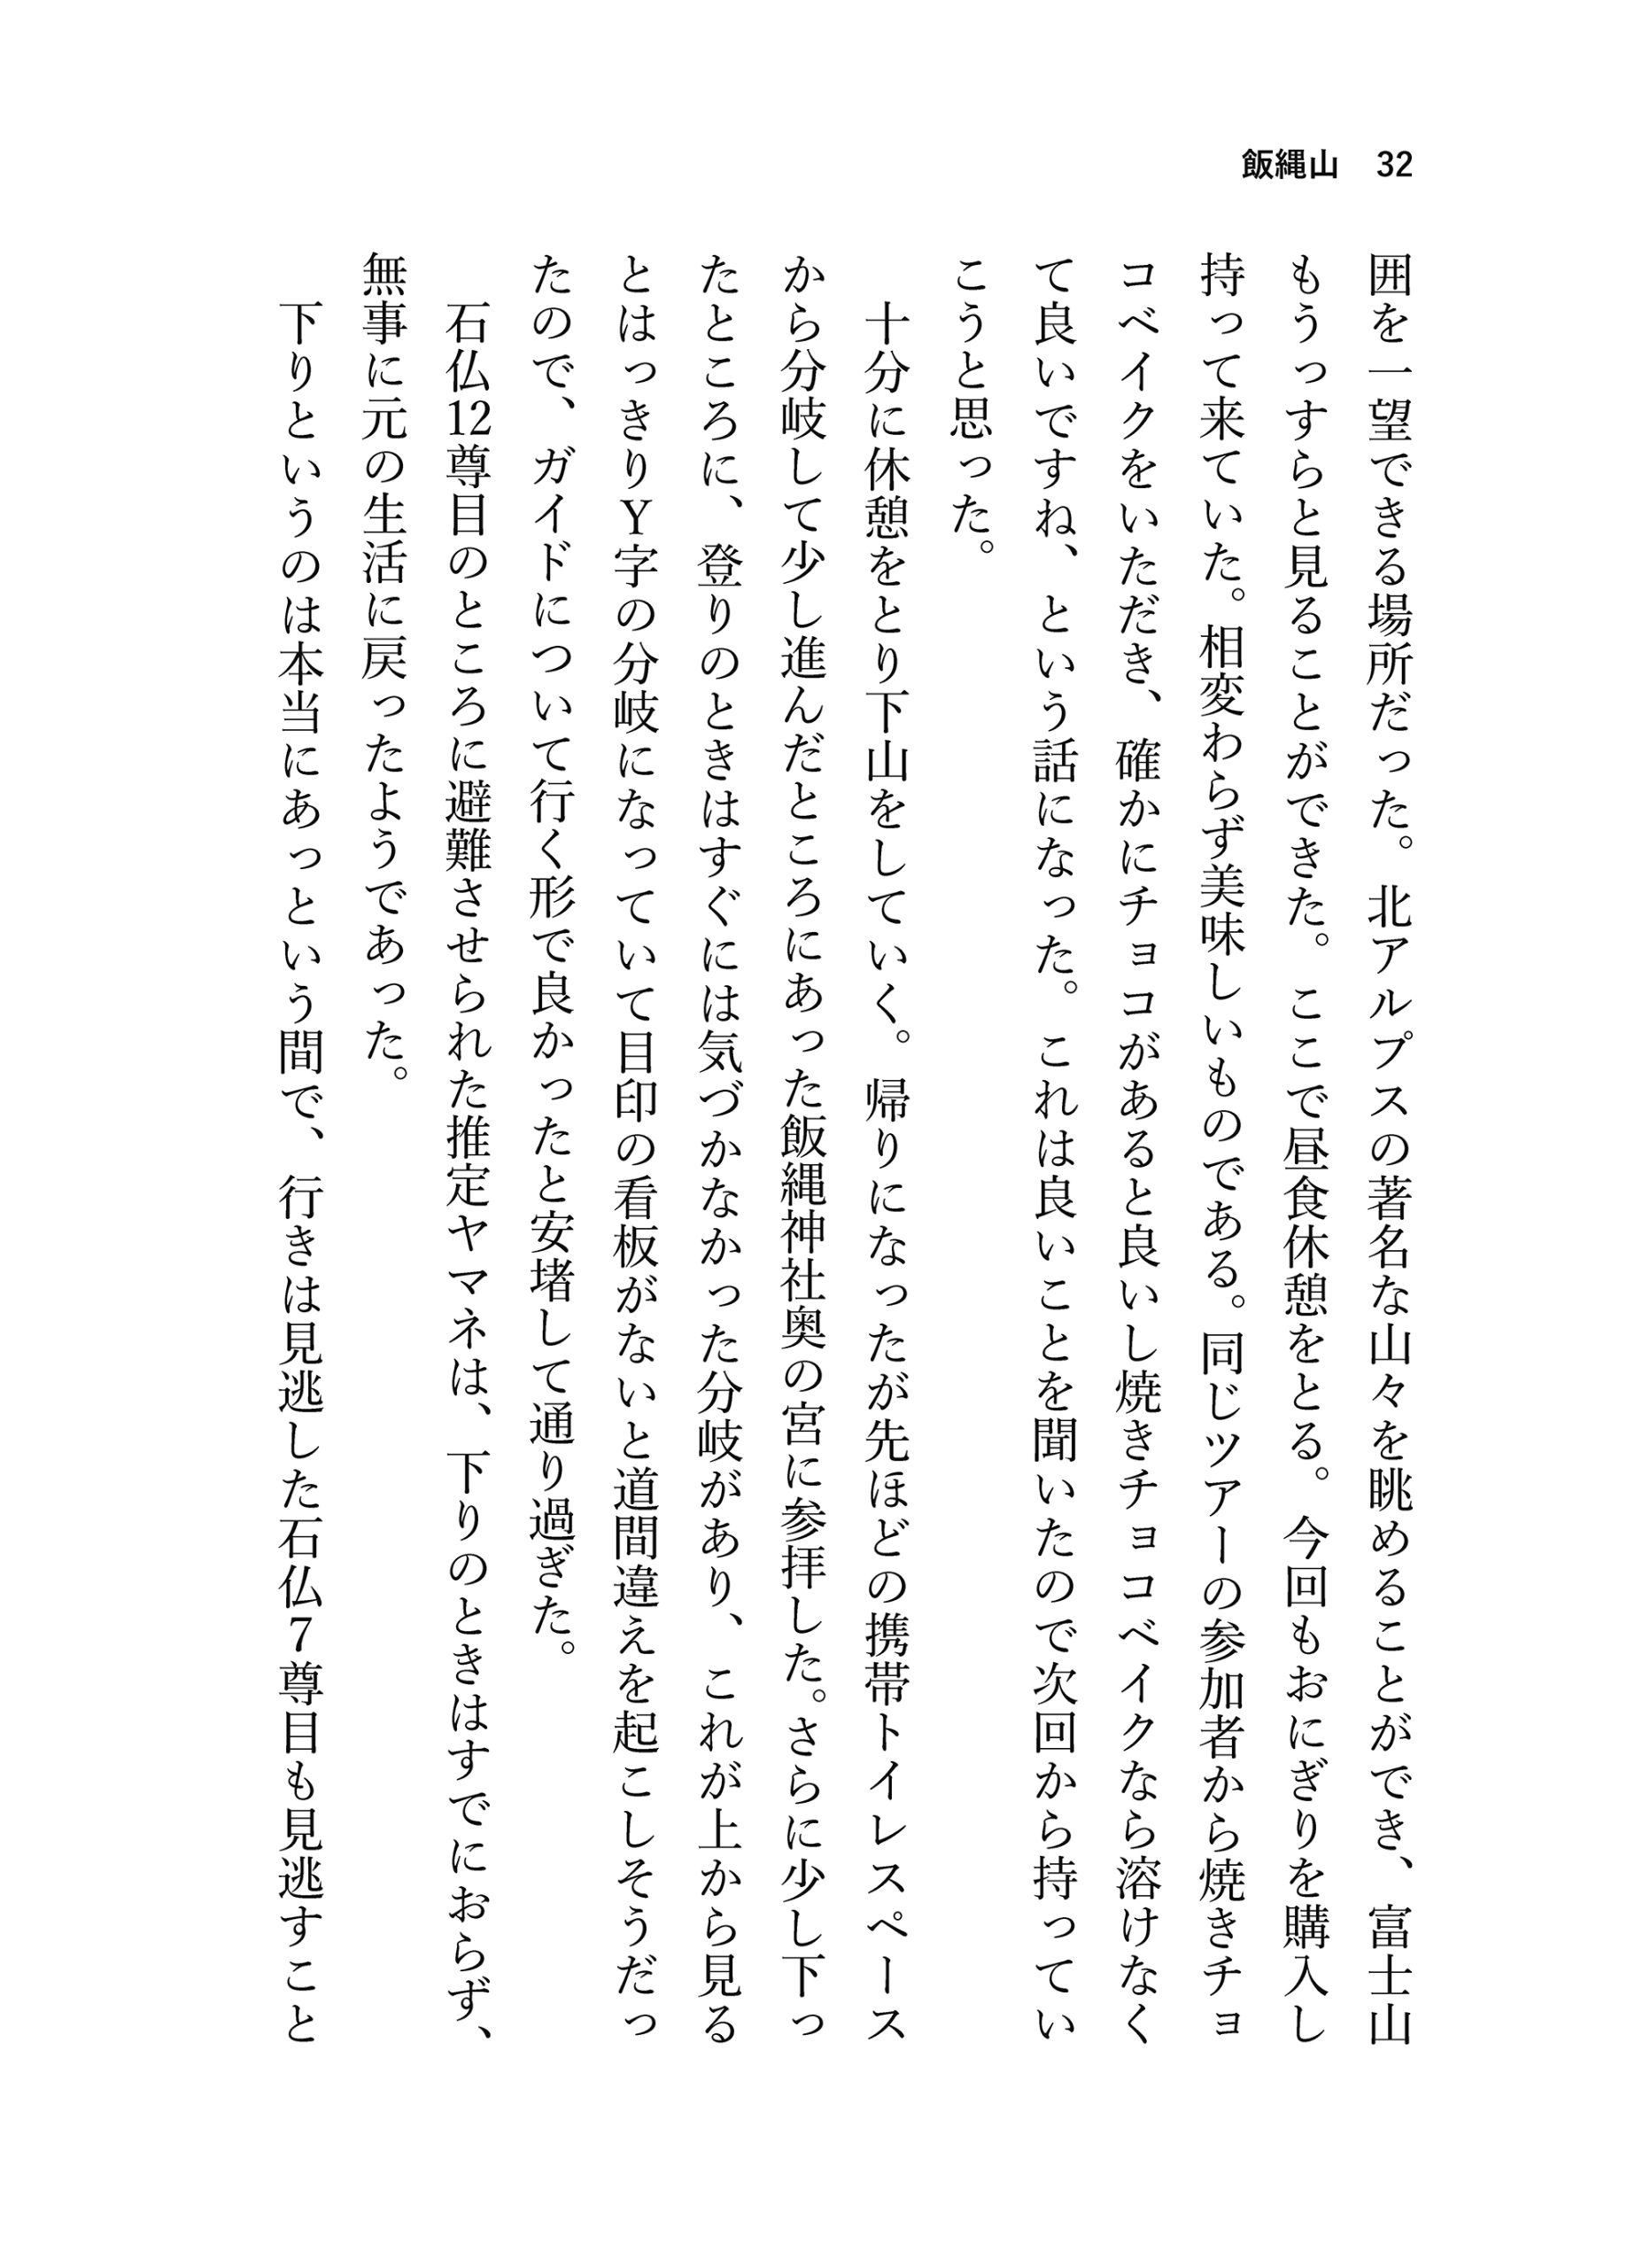 飯縄山　32
囲を一望できる場所だった。北アルプスの著名な山々を眺めることができ、富士山
もうっすらと見ることができた。ここで昼食休憩をとる。今回もおにぎりを購入し
持って来ていた。相変わらず美味しいものである。同じツアーの参加者から焼きチョ
コベイクをいただき、確かにチョコがあると良いし焼きチョコベイクなら溶けなく
て良いですね、という話になった。これは良いことを聞いたので次回から持ってい
こうと思った。
　十分に休憩をとり下山をしていく。帰りになったが先ほどの携帯トイレスペース
から分岐して少し進んだところにあった飯縄神社奥の宮に参拝した。さらに少し下っ
たところに、登りのときはすぐには気づかなかった分岐があり、これが上から見る
とはっきりＹ字の分岐になっていて目印の看板がないと道間違えを起こしそうだっ
たので、ガイドについて行く形で良かったと安堵して通り過ぎた。
　石仏12尊目のところに避難させられた推定ヤマネは、下りのときはすでにおらず、
無事に元の生活に戻ったようであった。
　下りというのは本当にあっという間で、行きは見逃した石仏７尊目も見逃すこと